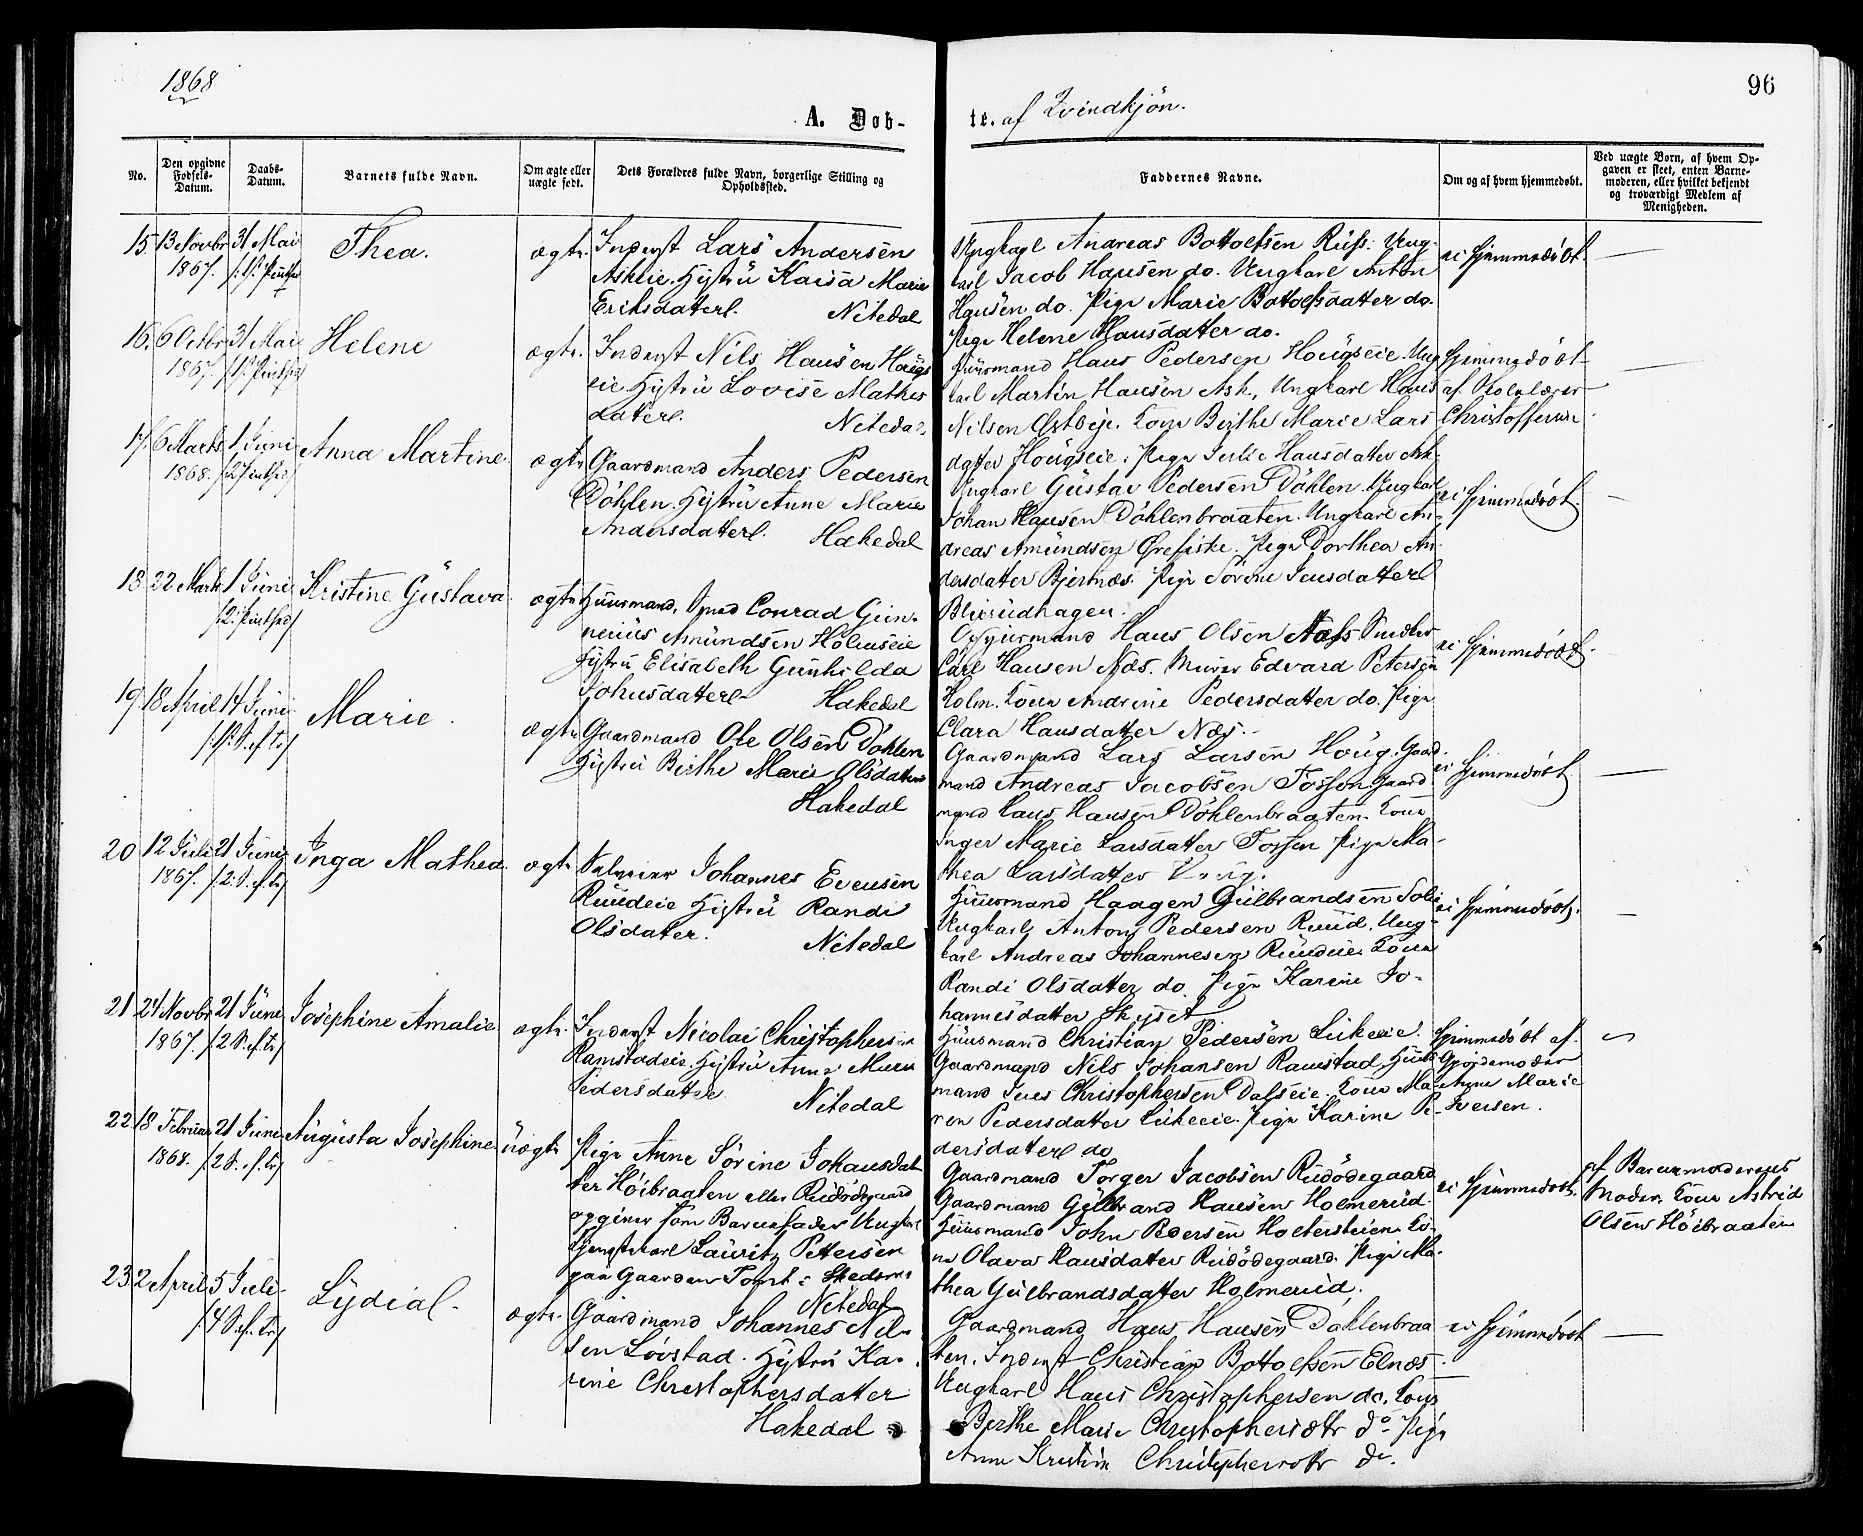 1868
96
A. Dob-
te. af Qvindkjön.
No.
Den opgivne Fødsels-Datum.
Daabs-Datum.
Barnets fulde Navn.
Om ægte eller uægte født.
Dets Forældres fulde Navn, borgerlige Stilling og Opholdssted.
Faddernes Navne.
Om og af hvem hjemmedøbt.
Ved uægte Børn, af hvem Op-
gaven er skeet, enten Barne-
moderen, eller hvilket bekjendt
og troværdigt Medlem af
Menigheden.
15. 13 Novbr 1867. 31 Mai /: 1ste Pintsed
Thea.
ægte.
Inderst Lars Andersen
Askeie. Hustru Kaisa Marie
Eriksdatter. Nitedal
Ungkarl Andreas Bottolfsen Rüss: Ung-
karl Jacob Hansen do. Ungkarl Anton
Hansen do. Pige Marie Bottolfsdatter do.
Pige Helene Hansdatter do.
ei hjemmedöbt.
16. 6 Octbr 1867. 31 Mai /1ste Pintsed/
Helene
ægte.
Inderst Nils Hansen Hougs
eie Hustru Lovise Mathis
datter. Nitedal
Huusmand Hans Pedersen Hougseie. Ung
karl Martin Hansen Ask, Ungkarl Hans
Nilsen Østbye. Kone Birthe Marie Lars
datter Hougseie. Pige Julie Hansdatter Ask.
hjemmedöbt
af Skolelærer
Christoffersen
17. 6 Marts 1868. 1 Juni /2 Pintsed/
Anna Martine
ægte
Gaardmand Anders Pedersen
Döhlen. Hustru Anne Marie
Andersdatter. Hakedal
Ungkarl Gustav Pedersen Döhlen. Ungkarl
Johan Hansen Döhlenbraaten. Ungkarl An-
dreas Amundsen Ørefiske. Pige Dorthea An-
dersdatter Bjertnæs. Pige Sörine Jensdatter
Blixrudhagen.
ei hjemmedöbt.
18. 22 Marts 1 Juni /2. Pintsed/
Kristine Gustava
ægte
Huusmand, Smed Conrad Gun-
nerius Amundsen Holmseie
Hustru Elisabeth Gunhilda
Johnsdatter. Hakedal
Opsynsmand Hans Olsen Næss Snedker
Carl Hansen Næs. Murer Edvard Petersen
Holm. Kone Andrine Pedersdatter do. Pige
Clara Hansdatter Næs.
ei hjemmedöbt.
19. 18 April 14 Juni /1ste S. ef. tr/
Marie.
ægte
Gaardmand Ole Olsen Döhlen
Hustru Birthe Marie Olsdatter
Hakedal
Gaardmand Lars Larsen Houg. Gaard
mand Andreas Jacobsen Fossen. Gaard
mand Hans Hansen Döhlenbraaten. Kone
Inger Marie Larsdatter Fossen Pige Ma-
thea Larsdatter Houg.
ei hjemmedöbt
20 12 Juli 1867. 21 Juni /2. S. ef. tr/
Inga Mathea
ægte
Selveier Johannes Evensen
Ruudeie Hustru Randi
Olsdatter. Nitedal
Huusmand Haagen Gulbrandsen
Ungkarl Anton Pedersen Ruud. Ung-
karl Andreas Johannesen Ruudeie. Kone
Randi Olsdatter do. Pige Karine Jo-
hannesdatter Skyset
ei hjemmedöbt.
21 24 Novbr 1867. 21 Juni /2 S. ef. tr/
Josephine Amalie
ægte.
Inderst Nicolai Christophersen
Ramstadeie. Hustru Anne Marie
Pedersdatter. Nitedal
Huusmand Christian Pedersen Likeeie.
Gaardmand Nils Johansen Ramstad. Huus
mand Jens Christophersen Dalseie. Kone Ma-
ren Pedersdatter Likeeie. Pige Karine Pe-
dersdatter do
hjemmedöbt af
Gjordemoder
Anne Marie
Iversen.
22. 18 Februar 1868. 21 Juni /2 S. ef. tr/
Augusta Josephine
uægte
Pige Anne Sörine Johansdat
ter Höibraaten eller Rudödegaard
opgiver som Barnefader Ungkarl
tjenestekarl Lauritz Pettersen
paa Gaarden i Skedsmo
Nitedal
Gaardmand Torger Jacobsen Rudödegaard
Gaardmand Gulbrand Hansen Holmerud.
Huusmand John Pedersen Holtersteien. Ko-
ne Olava Hansdatter Rudödegaard. Pige Ma-
thea Gulbrandsdatter Holmerud.
ei hjemmedöbt.
af Barnemoderens
Moder. Kone Astrid
Olsen Höibraaten
23. 2 April 5 Juli /4 S. ef. tr/
Lydia.
ægte.
Gaardmand Johannes Nil-
sen Lövstad. Hustru Ka-
rine Christophersdatter
Hakedal
Gaardmand Hans Hansen Döhlenbraa
ten. Inderst Christian Bottolfsen Elnæs
Ungkarl Hans Christophersen do. Kone
Berthe Marie Christophersdtr do. Pige
Anne Kristine Christophersdtr do.
ei hjemmedöbt